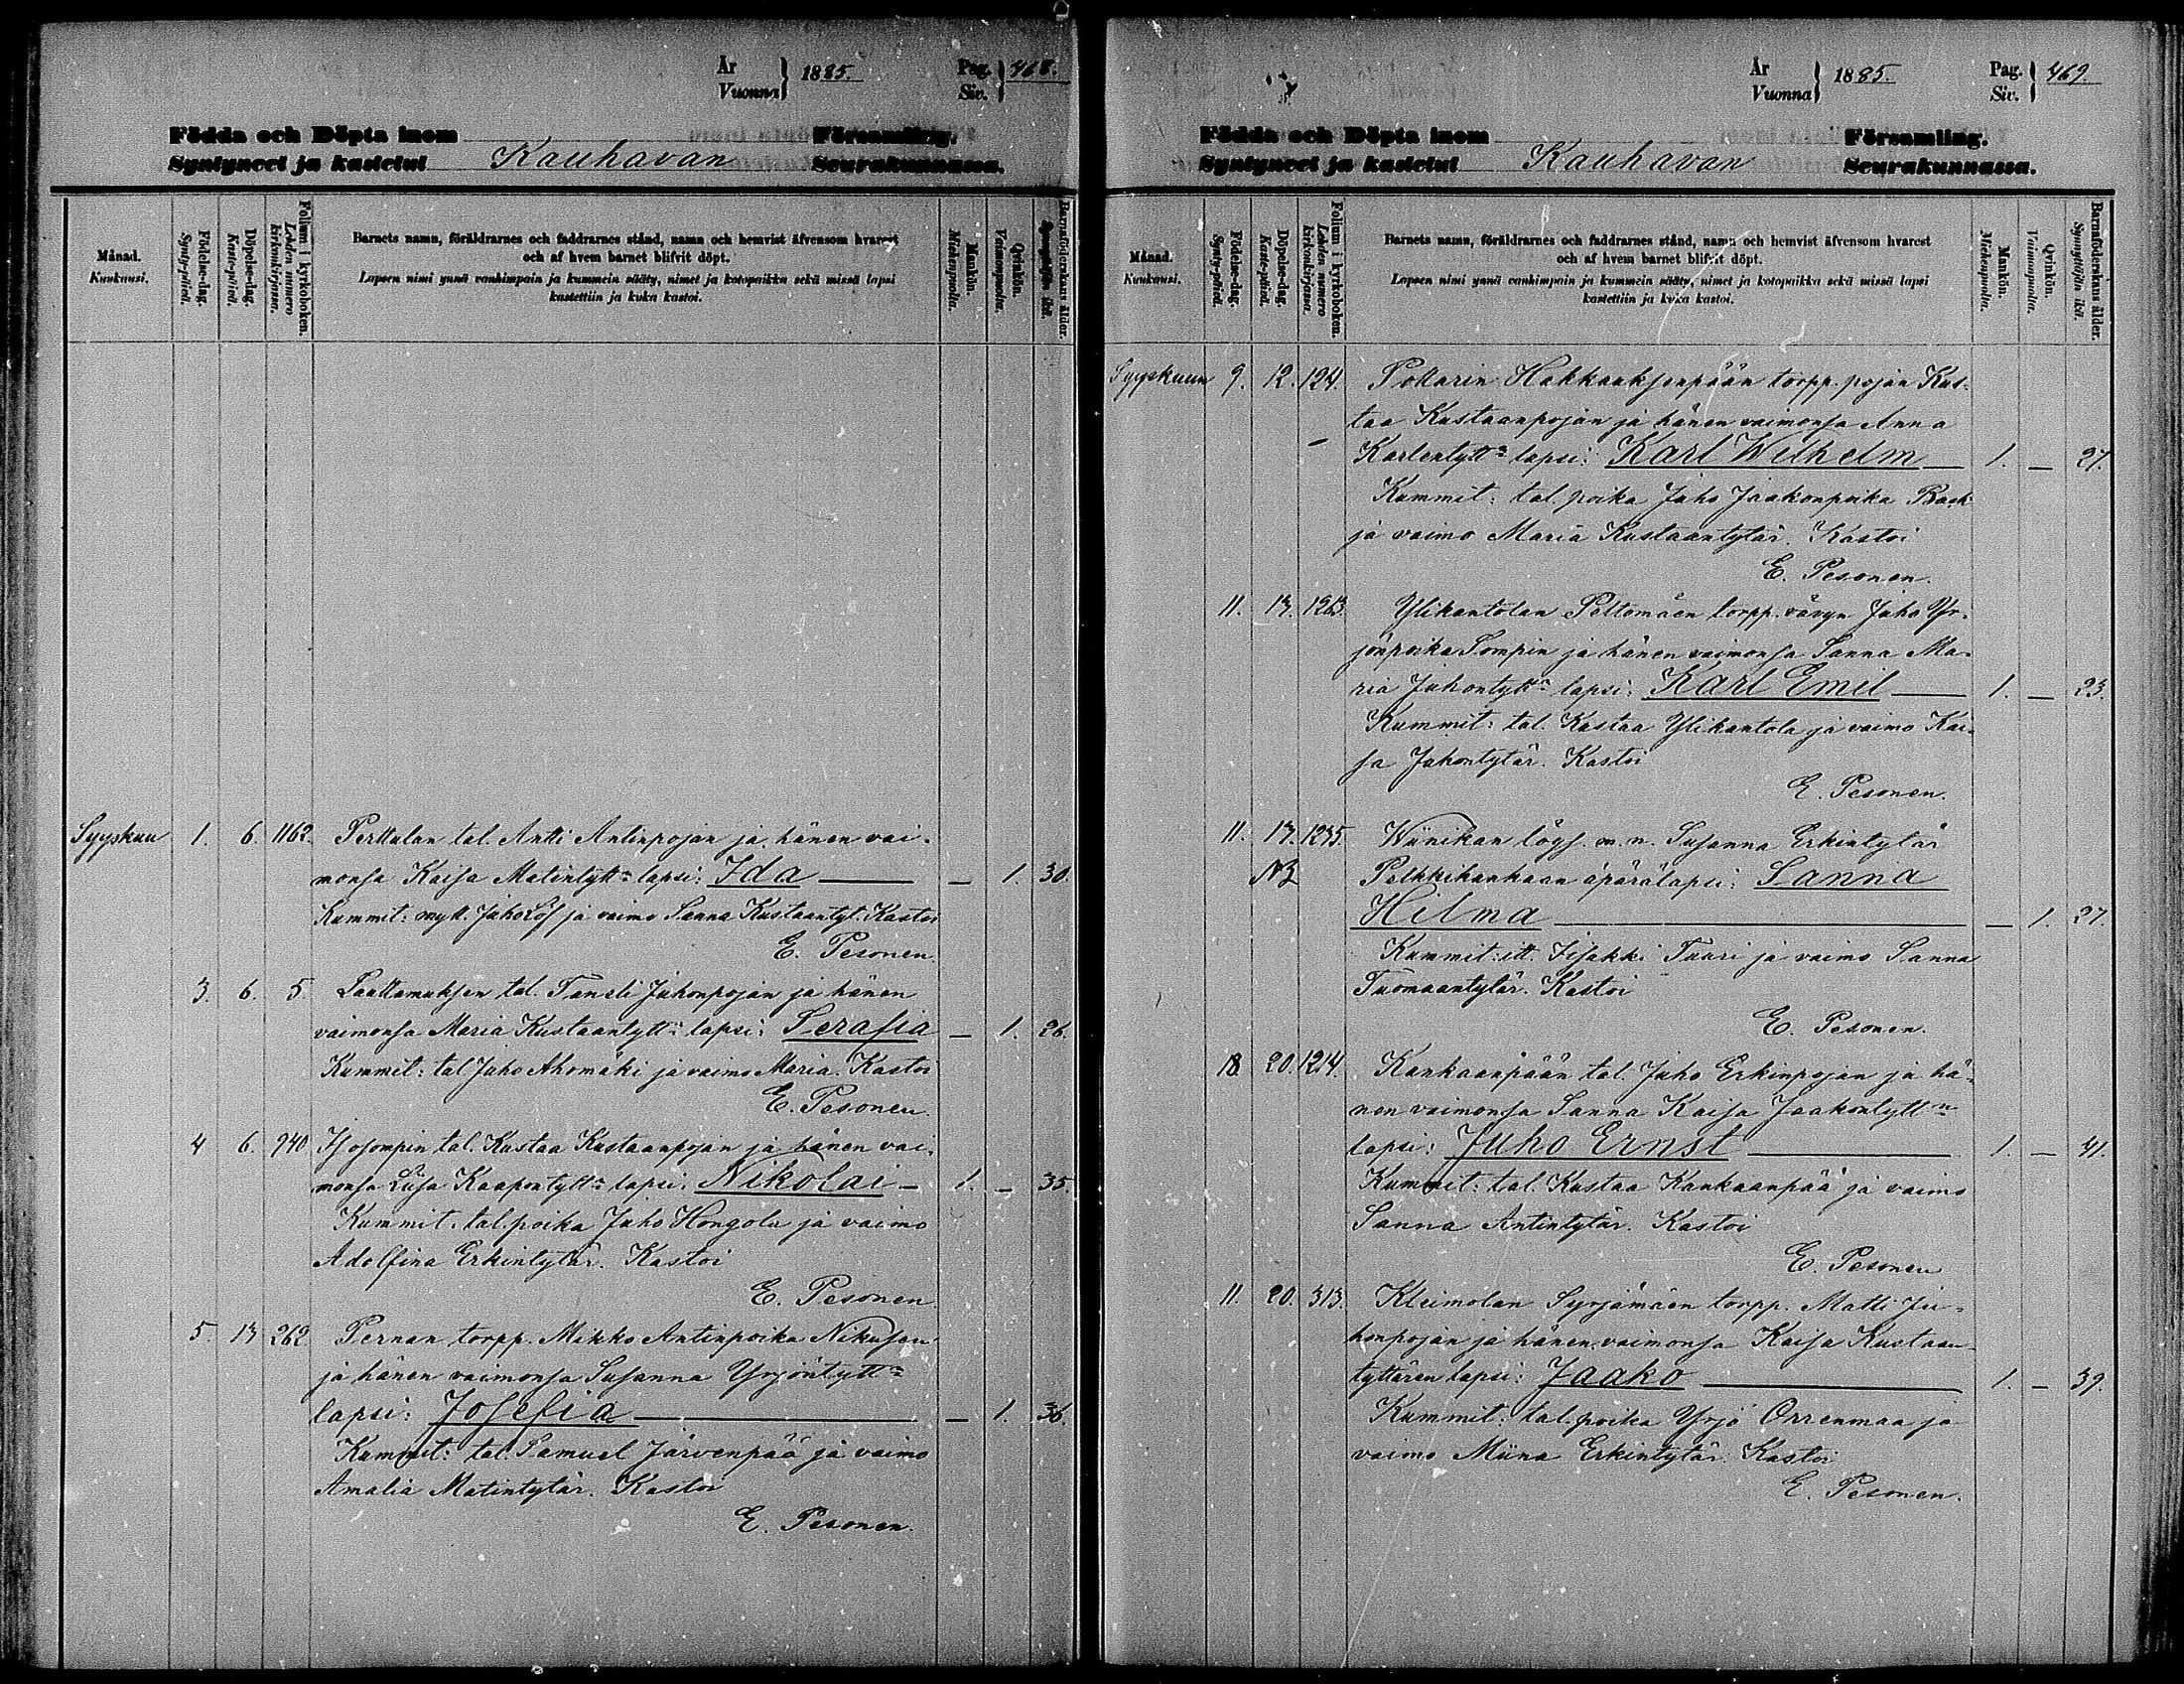 År
Vuonna } 1885.
Pag.
Siv. } 468.
Födda och Döpta inom Församling.
Syntyneet ja kastetut Kauhavan Seurakunnassa.
Månad.
Kuukausi.
Födelse-dag.
Synty-päivä.
Döpelse-dag.
Kaste-päivä.
Folium i kyrkoboken.
Lehden numero
kirkonkirjassa.
Barnets namn, föräldrarnes och faddrarnes stånd, namn och hemvist äfvensom hvarest
och af hvem barnet blifvit döpt.
Lapsen nimi ynnä vanhimpain ja kummein sääty, nimet ja kotopaikka sekä missä lapsi
kastettiin ja kuka kastoi.
Mankön.
Miehenpuolta.
Qvinkön.
Vaimonpuolta.
Barnaföderskans ålder.
Synnyttäjän ikä.
Syyskuu 1. 6. 1162. Perttulan tal. Antti Antinpojan ja hänen vai-
monsa Kaisa Matintytt:n lapsi: Ida — — 1. 30.
Kummit: mytt. Juho Löf ja vaimo Sanna Kustaantyt. Kastoi
E. Pesonen.
3. 6. 5 Laattamuksen tal. Taneli Juhonpojan ja hänen
vaimonsa Maria Kustaantytt:n lapsi: Serafia — 1. 26.
Kummit: tal Juho Ahomäki ja vaimo Maria. Kastoi
E. Pesonen.
4 6. 940 Isosompin tal. Kustaa Kustaanpojan ja hänen vai-
monsa Liisa Kaapontytt:n lapsi: Nikolai — 1. — 35.
Kummit: tal. poika Juho Hongola ja vaimo
Adolfina Erkintytär. Kastoi
E. Pesonen.
5. 13 262 Pernan torpp. Mikko Antinpoika Nikusen
ja hänen vaimonsa Susanna Yrjöntytt:n
lapsi: Josefia — — 1. 36.
Kummit: tal. Samuel Järvenpää ja vaimo
Amalia Matintytär. Kastoi
E. Pesonen.
År
Vuonna } 1885.
Pag.
Siv. } 469.
Födda och Döpta inom Församling.
Syntyneet ja kastetut Kauhavan Seurakunnassa.
Månad.
Kuukausi.
Födelse-dag.
Synty-päivä.
Döpelse-dag.
Kaste-päivä.
Folium i kyrkoboken.
Lehden numero
kirkonkirjassa.
Barnets namn, föräldrarnes och faddrarnes stånd, namn och hemvist äfvensom hvarest
och af hvem barnet blifvit döpt.
Lapsen nimi ynnä vanhimpain ja kummein sääty, nimet ja kotopaikka sekä missä lapsi
kastettiin ja kuka kastoi.
Mankön.
Miehenpuolta.
Qvinkön.
Vaimonpuolta.
Barnaföderskans ålder.
Synnyttäjän ikä.
Syyskuun 9. 12. 124. Pottarin Hakkauksenpään torpp. pojan Kus-
taa Kustaanpojan ja hänen vaimonsa Anna
Karlentytt:n lapsi: Karl Wilhelm — 1. — 27.
Kummit: tal. poika Juho Jaakonpoika Back
ja vaimo Maria Kustaantytär. Kastoi
E. Pesonen.
11. 13. 1263. Ylikantolan Peltomäen torpp. vävyn Juho Yr-
jönpoika Sompin ja hänen vaimonsa Sanna Ma-
ria Juhontytt:n lapsi: Karl Emil — 1. — 23.
Kummit: tal. Kustaa Ylikantola ja vaimo Kai-
sa Juhontytär. Kastoi
E. Pesonen.
11. 13. 1235. Wiinikan löys. m. n. Susanna Erkintytär
NB Pelkkikankaan äpärälapsi: Sanna
Hilma — — 1. 27.
Kummit: itt. Iisakki Tuuri ja vaimo Sanna
Tuomaantytär. Kastoi
E. Pesonen.
18. 20. 1214. Kankaanpään tal. Juho Erkinpojan ja hä-
nen vaimonsa Sanna Kaisa Jaakontytt:n
lapsi: Juho Ernst — 1. — 41.
Kummit: tal. Kustaa Kankaanpää ja vaimo
Sanna Antintytär. Kastoi
E. Pesonen
11. 20. 313. Kleimolan Syrjämäen torpp. Matti Ju-
honpojan ja hänen vaimonsa Kaisa Kustaan-
tyttären lapsi: Jaako — 1. — 39.
Kummit: tal. poika Yrjö Orrenmaa ja
vaimo Miina Erkintytär. Kastoi
E. Pesonen.